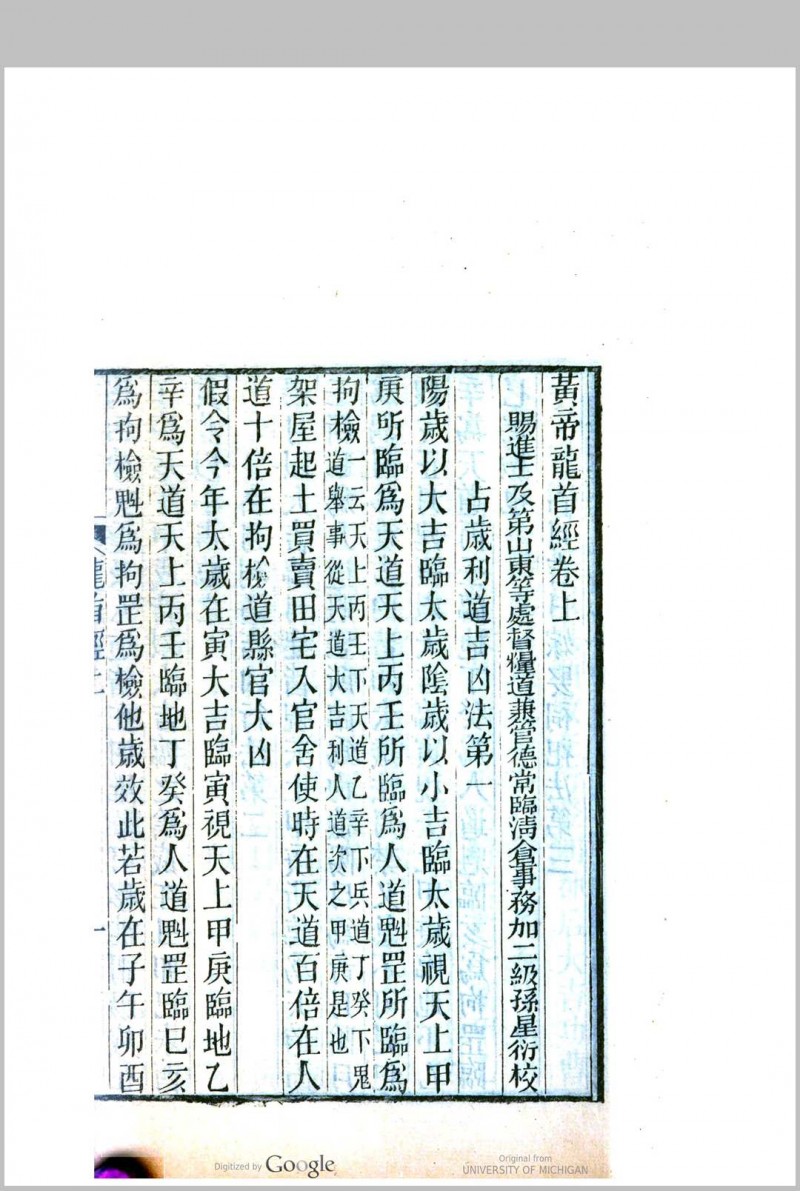 黃帝龍首經卷上
賜進士及第山東等處督糧道兼管德常臨淸倉事務加二級孫星衍校
占歲利道吉凶法第一
陽歲以大吉臨太歲陰歲以小吉臨太歲視天上甲
庚所臨爲天道天上丙壬所臨爲人道魁罡所臨爲
拘檢一云天上丙壬下天道乙辛下兵道丁癸下鬼
道舉事從天道大吉利人道次之甲庚是也
架屋起土買賣田宅入官舍使時在天道百倍在人
道十倍在拘檢道縣官大凶
假令今年太歲在寅大吉臨寅視天上甲庚臨地乙
辛爲天道天上丙壬臨地丁癸爲人道魁罡臨巳亥
爲拘檢魁爲拘罡爲檢他歲效此若歲在子午卯酉
龍首經上
一
Digitized by Google
Original from
UNIVERSITY OF MICHIGAN